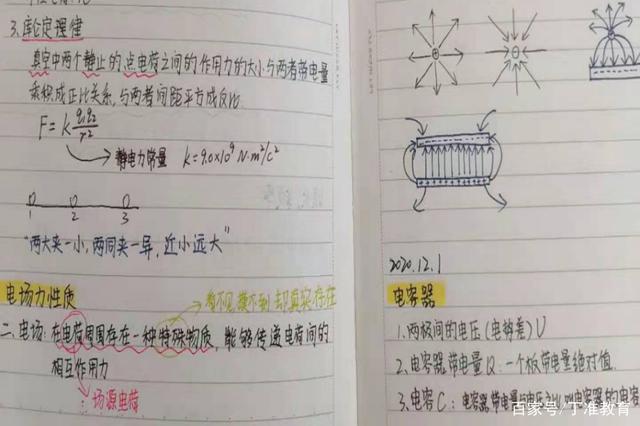 3.库仑定理律
真空中两个静止的点电荷之间的作用力的大小与两者带电量
乘积成正比关系,与两者间距平方成反比
F=k q₁q₂/r²
静电力常量 k=9.0×10⁹ N·m²/c²
1 2 3
"两大夹一小,两同夹一异,近小远大"
电场力性质
看不见摸不到却真实存在
二、电场:在电荷周围存在一种特殊物质,能够传递电荷间的
相互作用力
:场源电荷
2020.12.1
电容器
1.两极间的电压(电势差)U
2.电容器带电量Q:一个板带电量绝对值.
3.电容C:电容器带电量与电压之比叫电容器的电容
百家号/丁准教育